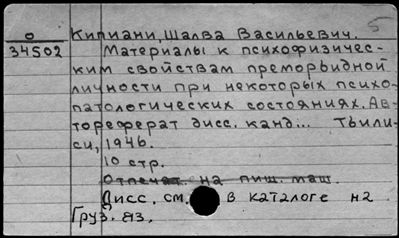 5
О Кипиани, Шалва Васильевич.
34502 Материалы к психофизичес-
ким свойствам преморбидной
личности при некоторых психо-
патологических состояниях. Ав-
тореферат дисс. канд... Тбили-
си, 1946.
10 стр.
Отпечат. на пиш. маш.
Дисс. см. в каталоге на
Груз. яз.